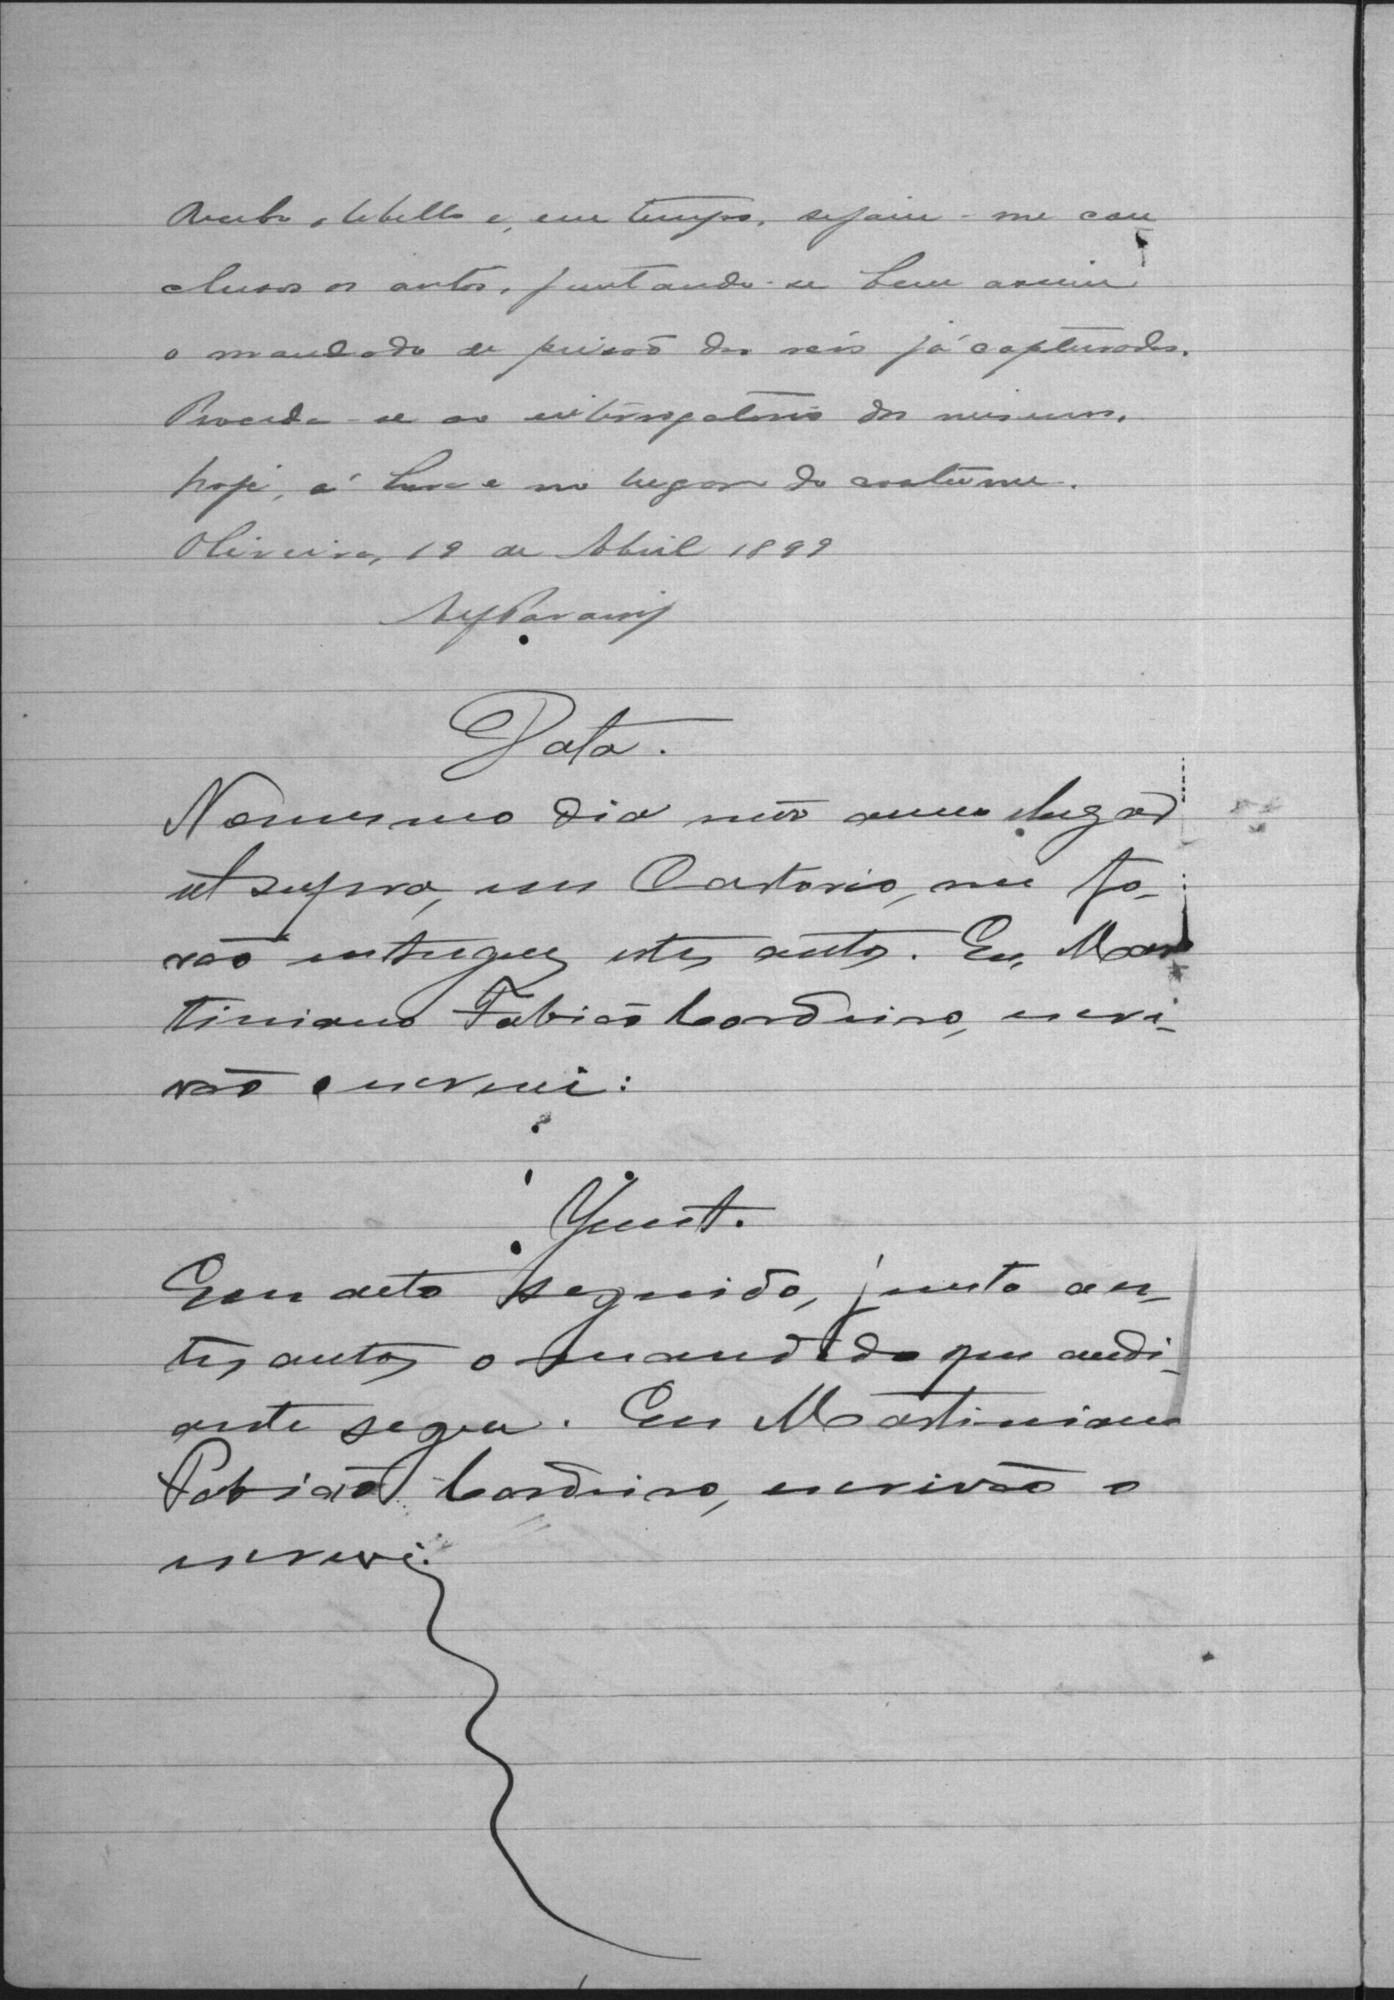 Recebo o libello e, em tempo, sejam-me con
clusos os autos, juntando-se bem assim
o mandado de prisaõ dos réis já capturados.
Proceda-se ao interrogatorio dos mesmos,
hoje, á hora e no lugar do costume.
Oliveira, 19 de Abril 1899
Data.
No mesmo dia mês anno e lugar
ut supra, em Cartorio, me fo-
raõ entregues estes autos. Eu, Mar
tiniano Fabiaõ Cordeiro, escri-
vaõ o escrevi:
Junt.
Em acto seguido, junto a es-
tes autos o mandado que andi-
ante segue. Eu Martiniano
Fabiaõ Cordeiro, escrivaõ o
escrevi.